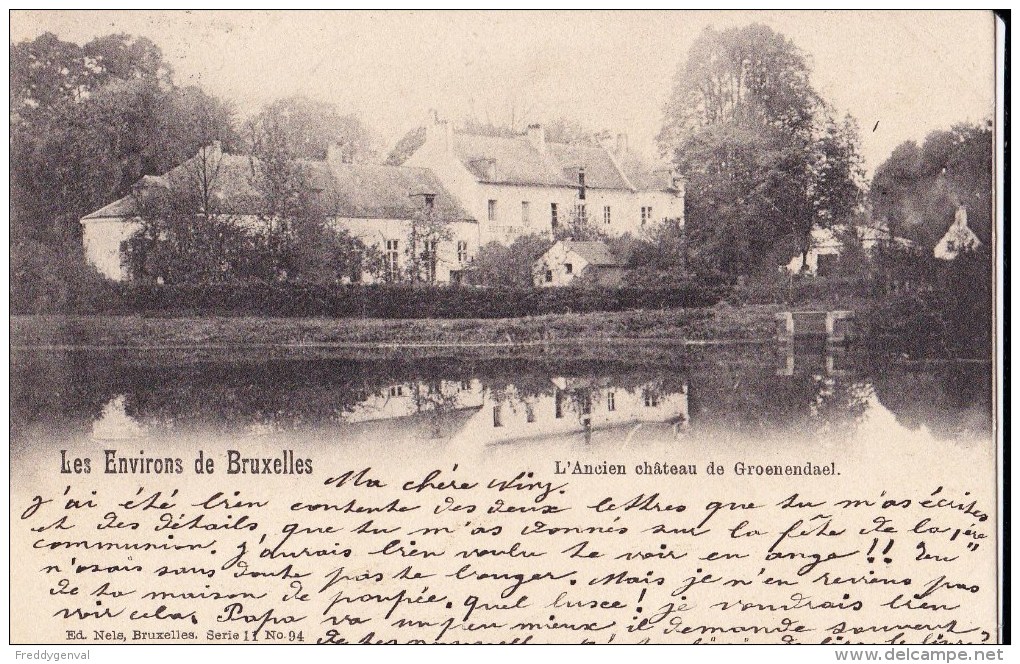 Les Environs de Bruxelles
L'Ancien château de Groenendael.
Ma chère
J'ai été bien contente des deux lettres que tu m'as écrites
et des détails, que tu m'as donnés sur la fête de la 1ère
communion. J'aurais bien voulu te voir en ange!! Tu
n'osais sans doute pas te bouger. Mais je n'en reviens pas
de ta maison de poupée. quel luxe! je voudrais bien
voir cela. Papa va un peu mieux il demande souvent
Ed. Nels, Bruxelles, Serie 11 No. 94
de tes nouvelles.
Freddygenval
www.delcampe.net